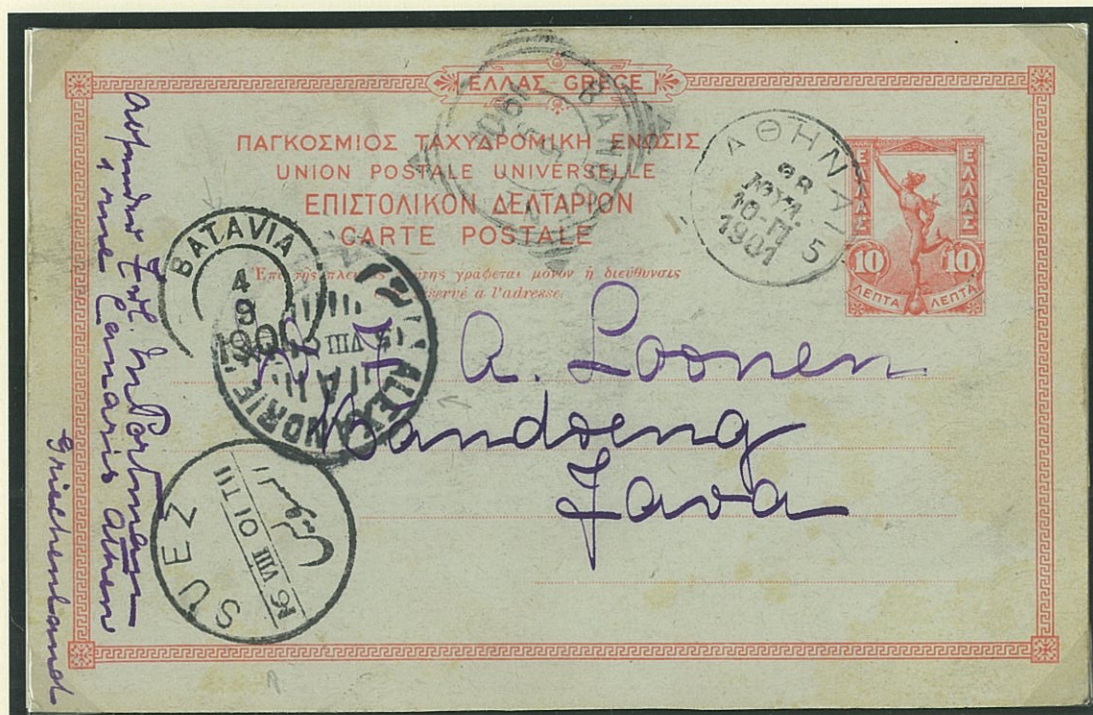 ΕΛΛΑΣ GRECE
ΠΑΓΚΟΣΜΙΟΣ ΤΑΧΥΔΡΟΜΙΚΗ ΕΝΩΣΙΣ
UNION POSTALE UNIVERSELLE
ΕΠΙΣΤΟΛΙΚΟΝ ΔΕΛΤΑΡΙΟΝ
CARTE POSTALE
γράφεται μόνον ἡ διεύθυνσις
à l'adresse.
ΑΘΗΝΑΙ 5
28
ΙΟΥΛ.
1901
ΕΛΛΑΣ
ΕΛΛΑΣ
10 10
ΛΕΠΤΑ ΛΕΠΤΑ
BATAVIA
4
9
190
ALEXANDRIE
VIII
A. Loonen
Bandoeng
Java
SUEZ
VIII 01 TII
1 rue Canaris Athen
Griechenland